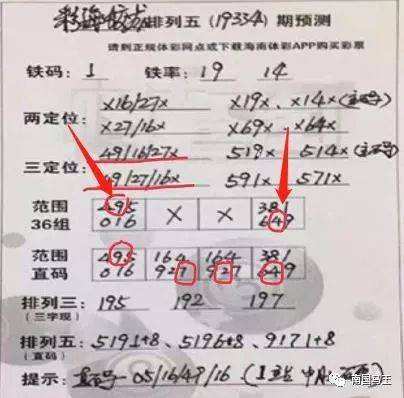 排列五(19334)期预测
请到正规体彩网点或下载海南体彩APP购买彩票
铁码: 1 铁率: 19 14
两定位: ×16/27× ×19×、×14×
×27/16× ×69×、×64×
三定位: 49/16/27× 519×、514×
49/27/16× 591×、571×
范围 495 × × 381
36组 016 649
范围 495 164 164 381
直码 016 927 927 649
排列三: 195 192 197
(三字现)
排列五: 5191+8、5196+8、9171+8
(直码)
提示: 05/16/49/16
南国码王